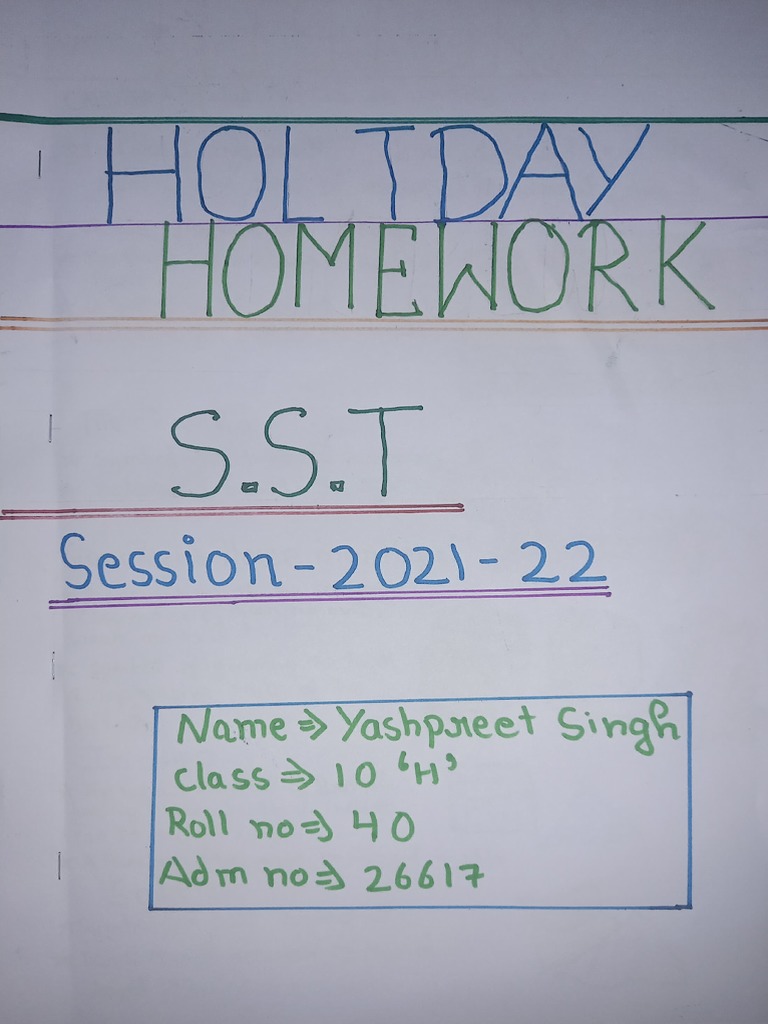 HOLIDAY
HOMEWORK
S.S.T
Session-2021-22
Name⇒Yashpreet Singh
Class⇒10 'H'
Roll no⇒40
Adm no⇒26617